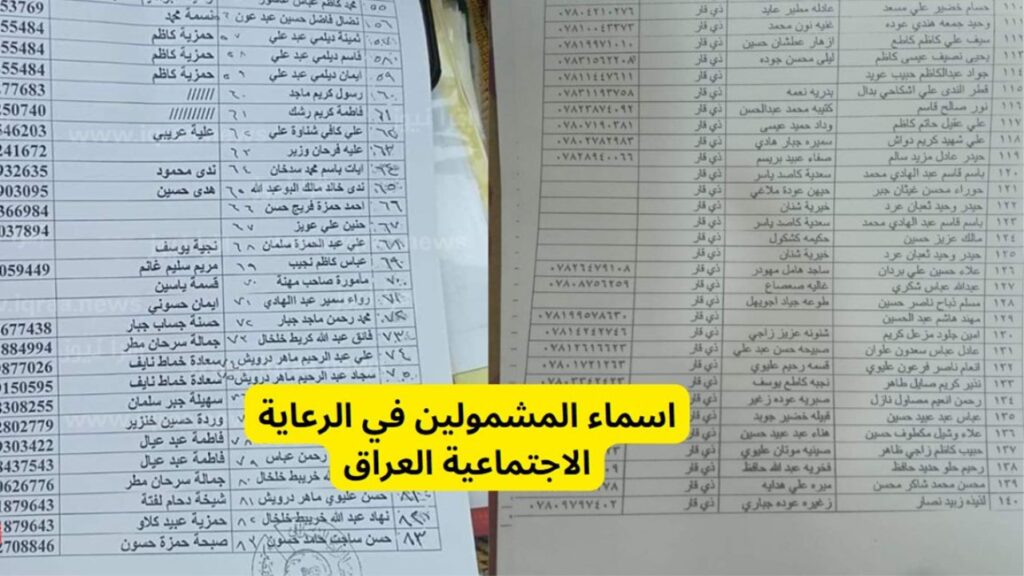 ١١٠ حسام خضير علي مسعد عادله مطير عايد ذي قار ٠٧٨٠٤٢١٠٢٧٦
وحيد جمعه هندي عوده غفيه نون محمد ذي قار ٠٧٨١٠٠٤٣٣٧٣
١١١ سيف علي كاظم كاطع ازهار عطشان حسين ذي قار ٠٧٨١٩٩٧١٠١٠
١١٣ يحيى نصيف عيسى كاظم ليلى محسن جوده ذي قار
١١٤ جواد عبدالكاظم حبيب عويد ذي قار ٠٧٨١١٤٤٧٦١١
١١٥ قطر الندى علي اشكاحي بدال بدريه نعمه ذي قار ٠٧٨٣١١٩٣٧٥٨
١١٦ نور صالح قاسم كتيبه محمد عبدالحسن ذي قار ٠٧٨٢٣٨٧٤٠٩٢
١١٧ علي عقيل حاتم كاظم وداد حميد عيسى ذي قار ٠٧٨٠٧١٩٠٣٨١
١١٨ علي شهيد كريم دواش سميره جبار هادي ذي قار ٠٧٨٠٢٧٨٢٩٨٣
١١٩ حيدر عادل مزيد سالم صفاء عبيد بريسم ذي قار ٠٧٨٢٨٩٤٠٠٦٦
١٢٠ باسم قاسم عبد الهادي محمد سعدية كاصد ياسر ذي قار
١٢١ حوراء محسن غيثان جبر جيهن عودة ملاغي ذي قار
١٢٢ حيدر وحيد ثعبان عرد خيرية شنان ذي قار
١٢٣ باسم قاسم عبد الهادي محمد سعدية كاصد ياسر ذي قار
١٢٤ مالك عزيز حسين حكيمه كشكول ذي قار
١٢٥ حيدر وحيد ثعبان عرد خيرية شنان ذي قار
١٢٦ علاء حسين علي بردان ساجد هامل مهودر ذي قار ٠٧٨٢٦٤٧٩١٠٨
١٢٧ عبدالله عباس شكري غالية صعصاع ذي قار ٠٧٨٠٨٧٥٦٢٥٩
١٢٨ مسلم ذباح ناصر حسين طوعه جياد اجويهل ذي قار
١٢٩ مهند هاشم عبد الحسين ذي قار ٠٧٨١٩٩٥٧٨٦٣٠
١٣٠ امين جلود مزعل كريم شنونه عزيز زاجي ذي قار ٠٧٨١٤٢٤٢٧٤٦
١٣١ عادل عباس سعدون علوان صبيحه حسن عبد علي ذي قار ٠٧٨١٢٦١٦٦٢٣
١٣٢ انعام ناصر فرعون عليوي قسمه رحيم عليوي ذي قار ٠٧٨٠١٧٢١٢٦٣
١٣٣ نذير كريم صايل طاهر نجبه كاطع يوسف ذي قار
١٣٤ رحمن انعيم مصاول نازل صبريه عوده زغير ذي قار
١٣٥ عباس عبد عبيد حسين قبيله خضير جويد ذي قار
١٣٦ علاء وشيل مكطوف حسين هناء عبد عبيد حسين ذي قار
١٣٧ حبيب كاظم زاجي طاهر صينيه موتان عليوي ذي قار
١٣٨ رحيم حلو حديد حافظ فخرية عبد الله حافظ ذي قار
١٣٩ محسن محمد شاكر محسن ميره علي هدايه ذي قار
١٤٠ لذيذه زبيد نصار زغيره عوده جباري ذي قار ٠٧٨٠٩٧٩٧٤٠٢
٥٥ محمد كاظم عباس 53769
٥٦ نضال فاضل حسين عبد عون نسمة محمد
ثمينة ديلمي عبد علي حمزية كاظم 55484
٥٨ قاسم ديلمي عبد علي حمزية كاظم 55484
٥٩ ايمان ديلمي عبد علي حمزية كاظم 55484
٦٠ رسول كريم ماجد ////// 77683
٦١ فاطمة كريم رشك ////////// 250740
علي كافي شناوة علي علية عريبي 546203
٦٣ عليه فرحان وزير 241672
٦٤ ايات باسم محمد سدخان ندى محمود 932635
٦٥ ندى خالد مالك البوعبد الله هدى حسين 903095
٦٦ احمد حمزة فريج حسن 366984
٦٧ حنين علي عويز 037894
٦٨ علي عبد الحمزة سلمان نجية يوسف
٦٩ عباس كاظم نجيب مريم سليم غانم 059449
٧٠ مامورة صاحب مهنة قسمة ياسين
٧١ رواء سمير عبد الهادي ايمان حسوني
٧٢ محمد رحمن ماجد جبار حسنة جساب جبار 677438
٧٣ فائق عبد الله كريط خلخال جمالة سرحان مطر 884994
٧٤ علي عبد الرحيم ماهر درويش سعادة خماط نايف 9877026
٧٥ سجاد عبد الرحيم ماهر درويش سعادة خماط نايف 9150595
سهيلة جبر سلمان 8308255
وردة حسين خنزير 2802779
فاطمة عبد عيال 9303422
رحمن عباس فاطمة عبد عيال 8437543
خريبط خلخال جمالة سرحان مطر 0626776
٨١ حسن عليوي ماهر درويش شيخة دحام لفتة 1879643
نهاد عبد الله خريبط خلخال حمزية عبيد كلاو 1879643
٨٣ حسن ساجت حامد حسون صبحة حمزة حسون 2708846
اسماء المشمولين في الرعاية
الاجتماعية العراق